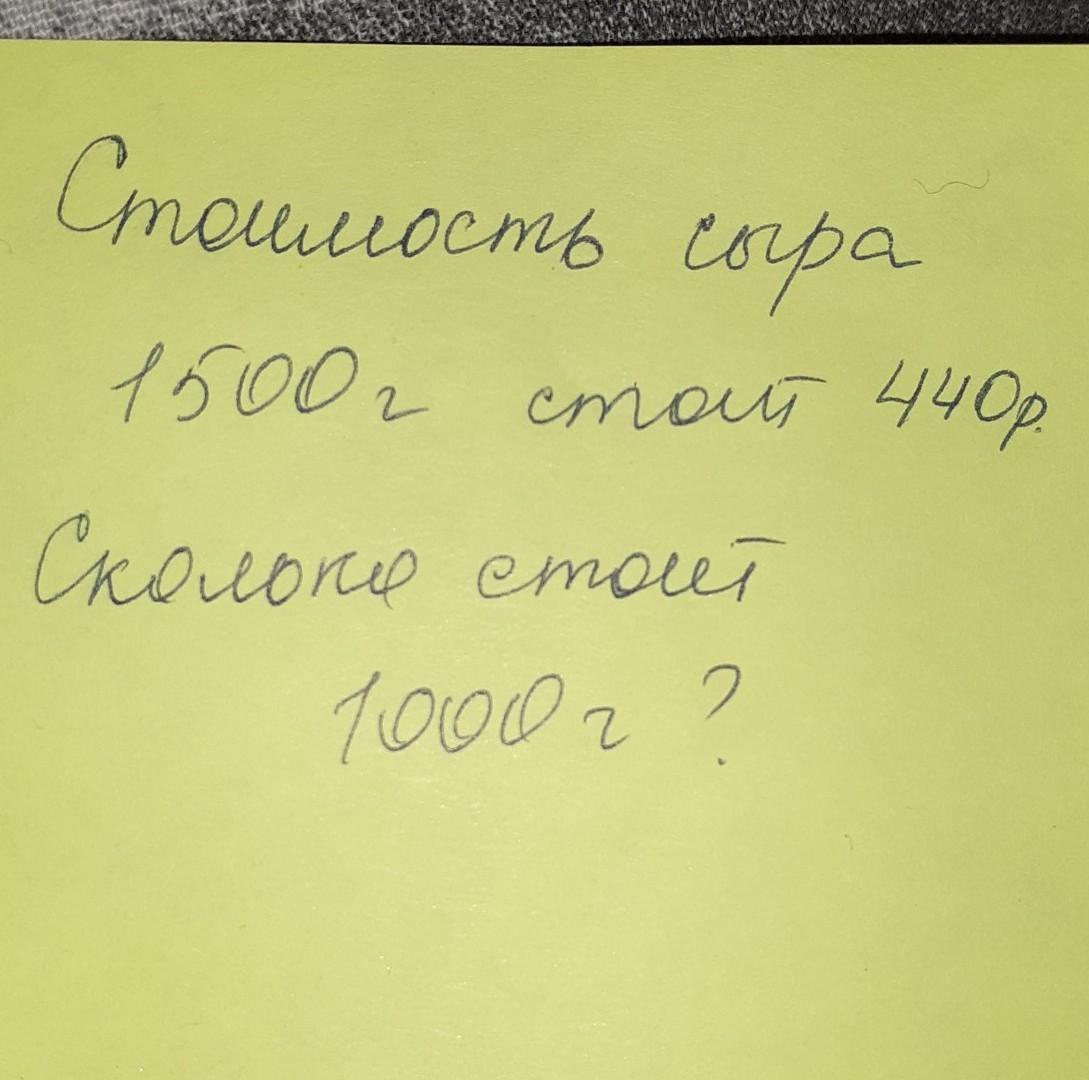 Стоимость сыра
1500г стоит 440р.
Сколько стоит
1000г ?